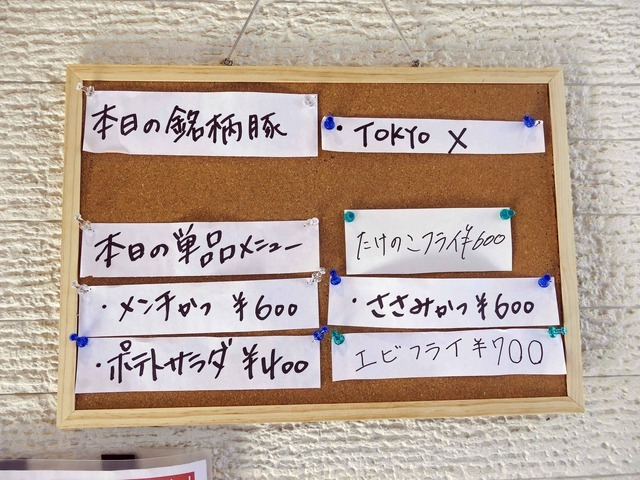 本日の銘柄豚
・TOKYO X
本日の単品メニュー
たけのこフライ¥600
・メンチかつ ¥600
・ささみかつ ¥600
・ポテトサラダ ¥400
エビフライ ¥700